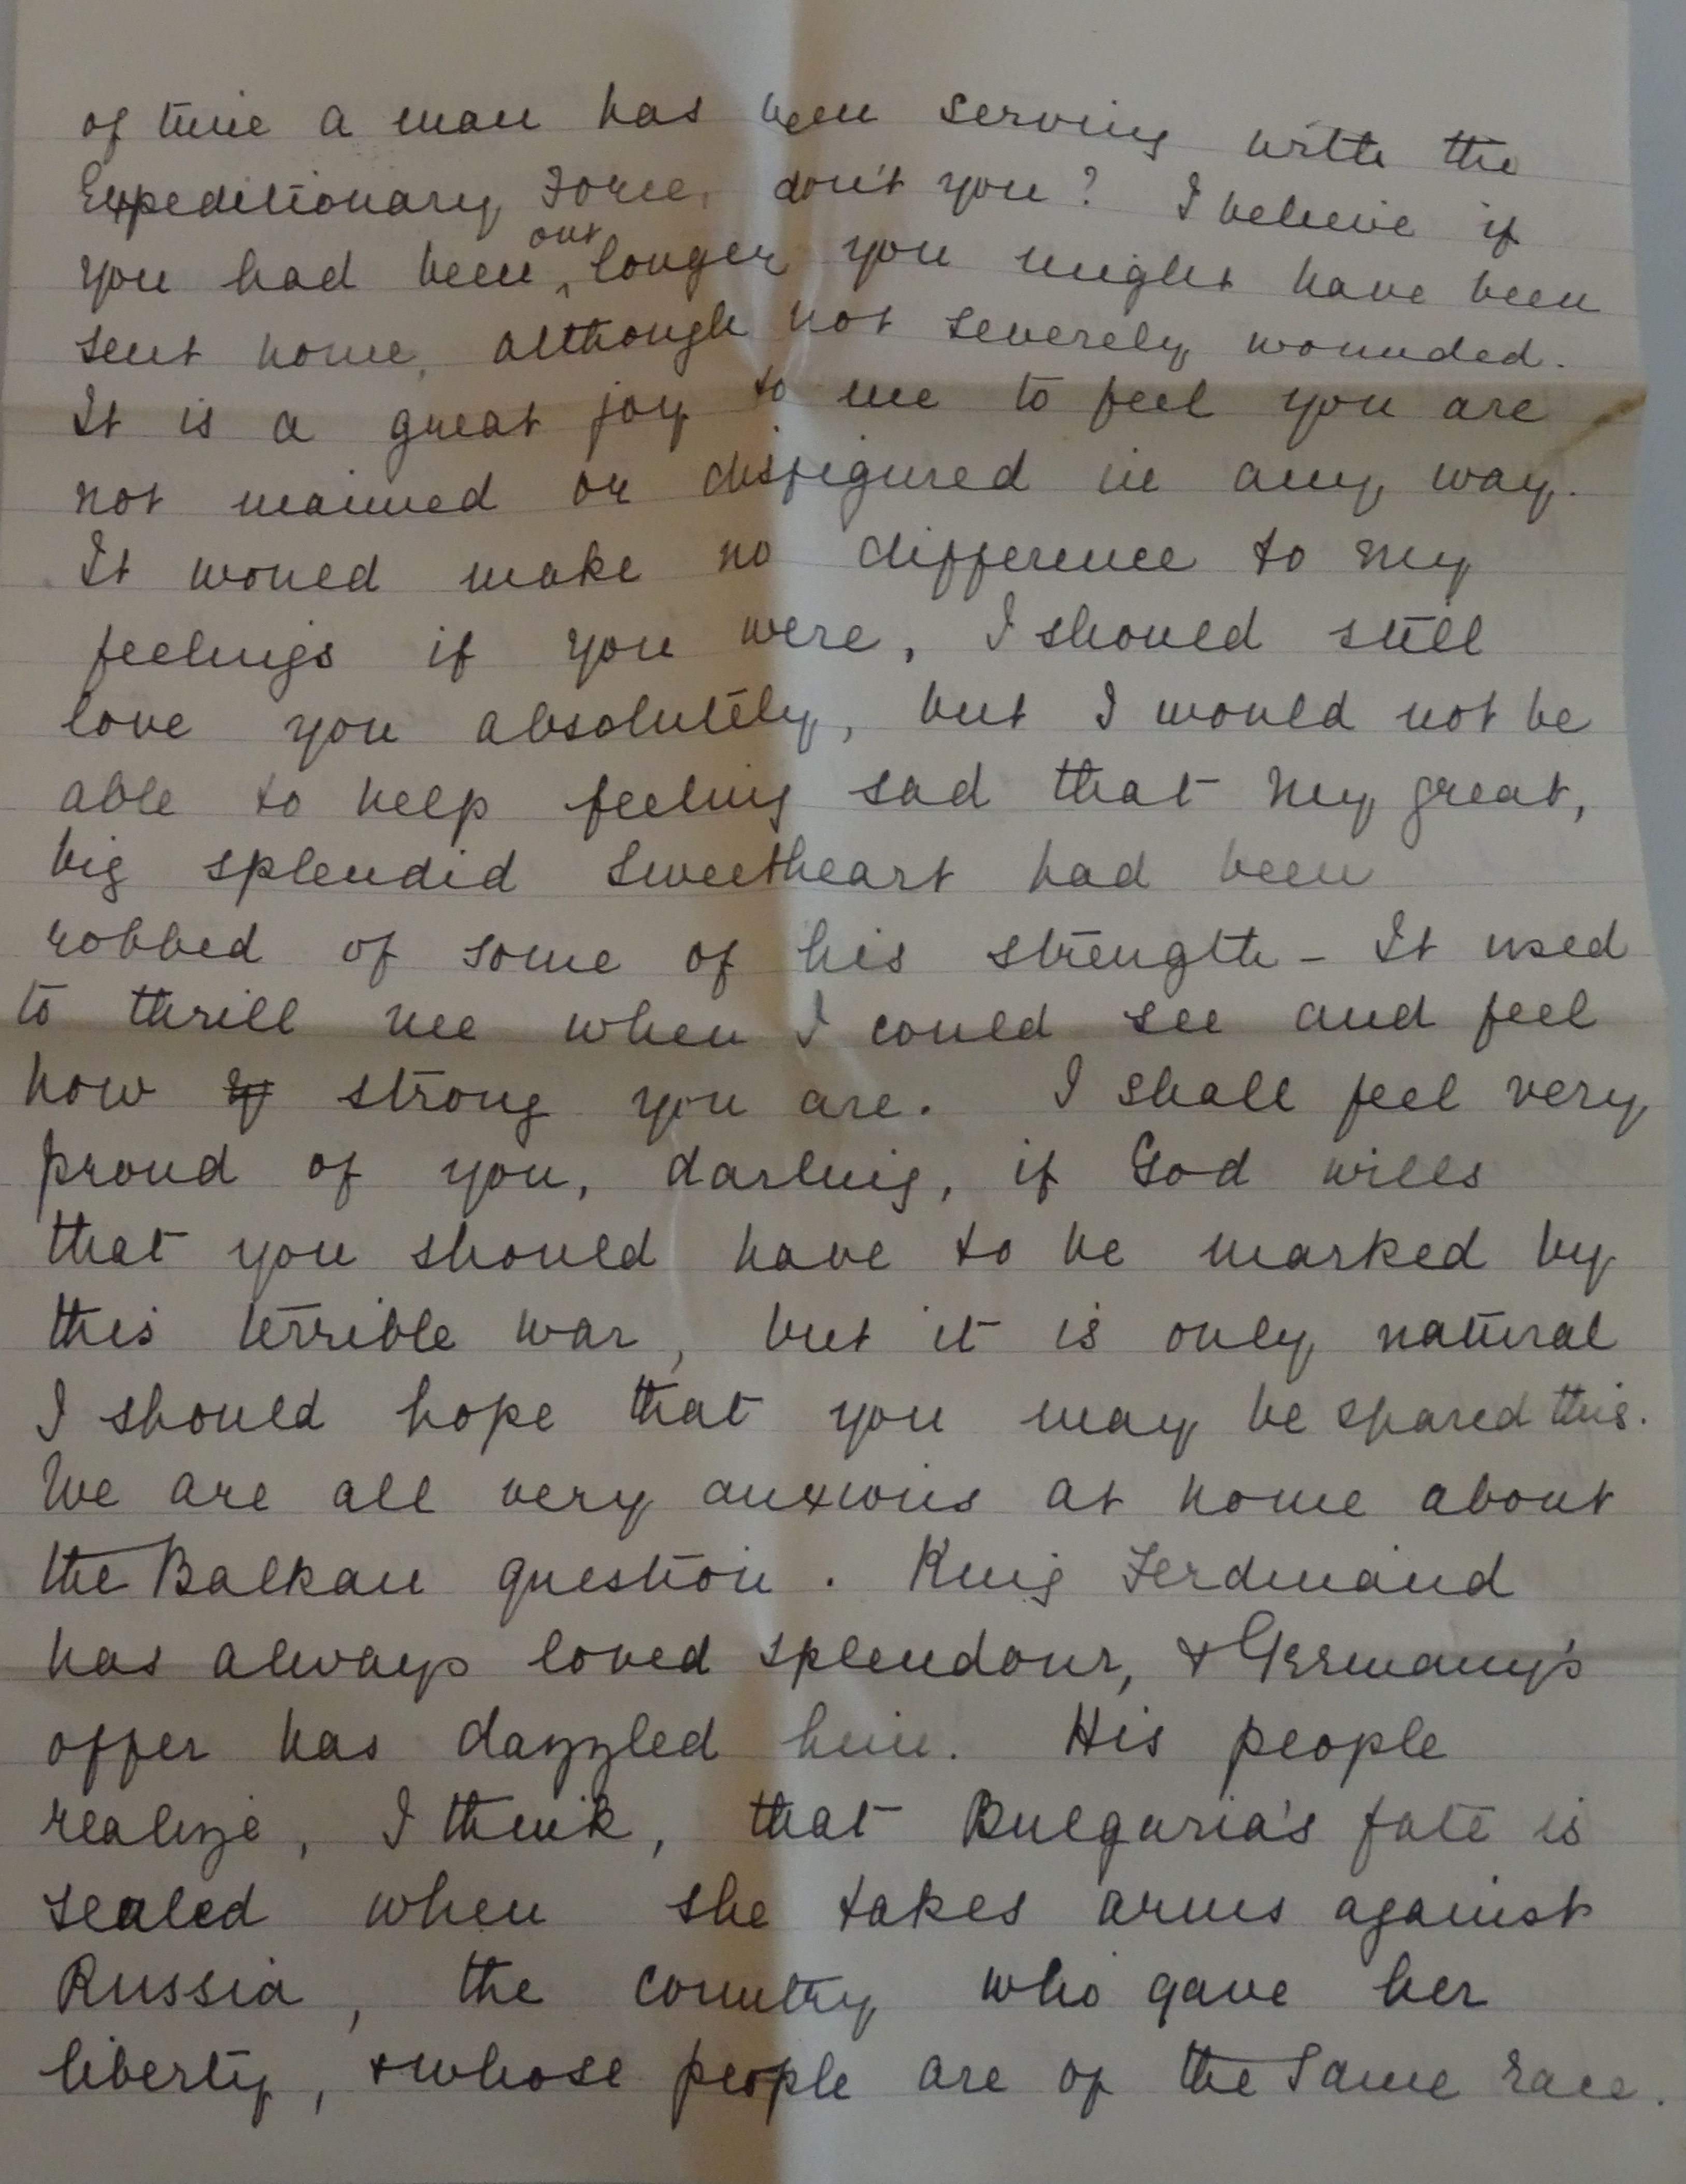 of time a man has been serving with the
Expeditionary Force, don't you? I believe if
you had been out longer you might have been
sent home, although not severely wounded.
It is a great joy to me to feel you are
not maimed or disfigured in any way.
It would make no difference to my
feelings if you were, I should still
love you absolutely, but I would not be
able to help feeling sad that my great,
big splendid sweetheart had been
robbed of some of his strength - It used
to thrill me when I could see and feel
how strong you are. I shall feel very
proud of you, darling, if God wills
that you should have to be marked by
this terrible war, but it is only natural
I should hope that you may be spared this.
We are all very anxious at home about
the Balkan question. King Ferdinand
has always loved splendour, & Germany's
offer has dazzled him. His people
realize, I think, that Bulgaria's fate is
sealed when she takes arms against
Russia, the country who gave her
liberty, & whose people are of the same race.